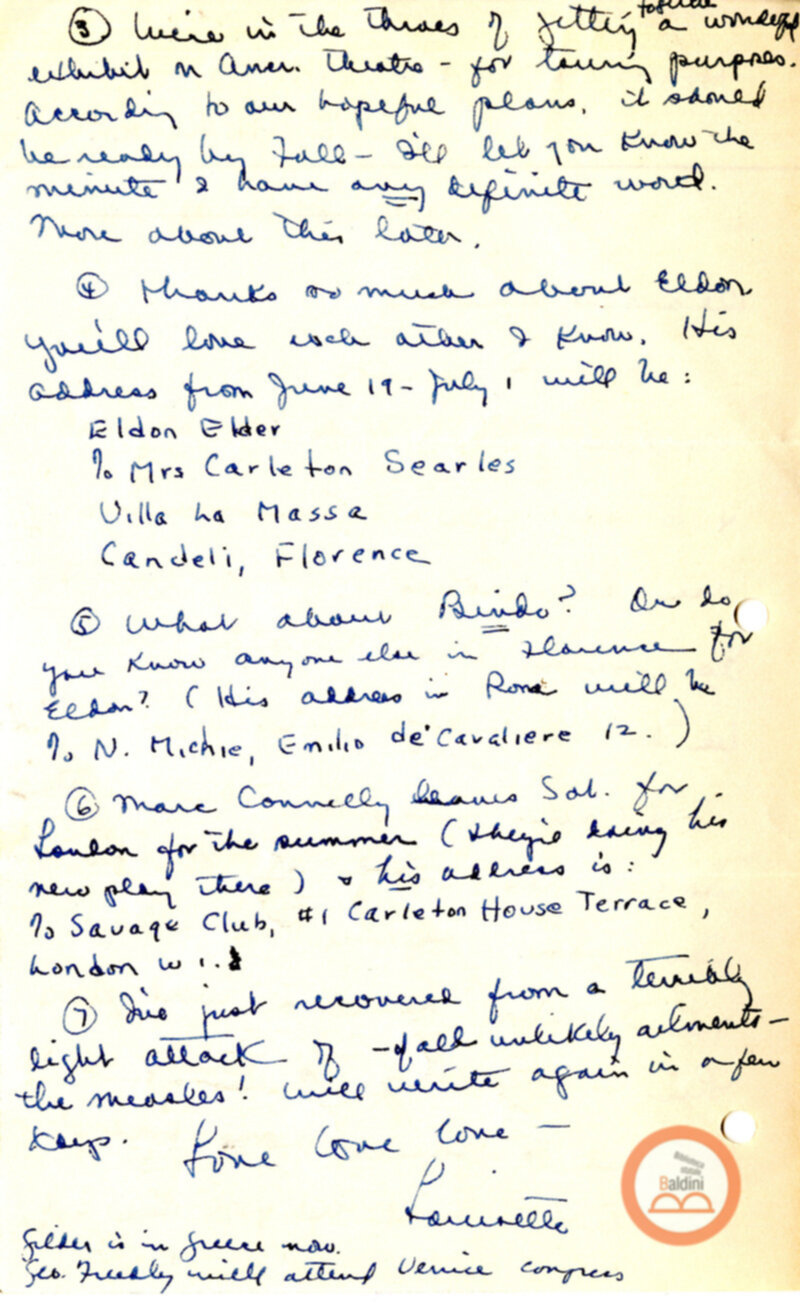 ③ We're in the throes of getting together a wonderful
exhibit on Amer. Theatre - for touring purposes.
According to our hopeful plans, it should
be ready by Fall - I'll let you know the
minute I have any definite word.
More about this later.
④ Thanks so much about Eldon
You'll love each other I know. His
address from June 19 - July 1 will be:
Eldon Elder
c/o Mrs Carleton Searles
Villa La Massa
Candeli, Florence
⑤ What about Bindo? Or do
you know anyone else in Florence for
Eldon? (His address in Rome will be
c/o N. Michie, Emilio de' Cavaliere 12.)
⑥ Marc Connelly leaves Sat. for
London for the summer (they're doing his
new play there) & his address is:
c/o Savage Club, #1 Carleton House Terrace,
London W 1.
⑦ I've just recovered from a terribly
light attack of - of all unlikely ailments -
the measles! Will write again in a few
days. Love love love -
Louisette
Gilder is in Greece now.
Geo. Freedley will attend Venice congress
Biblioteca
statale
Baldini